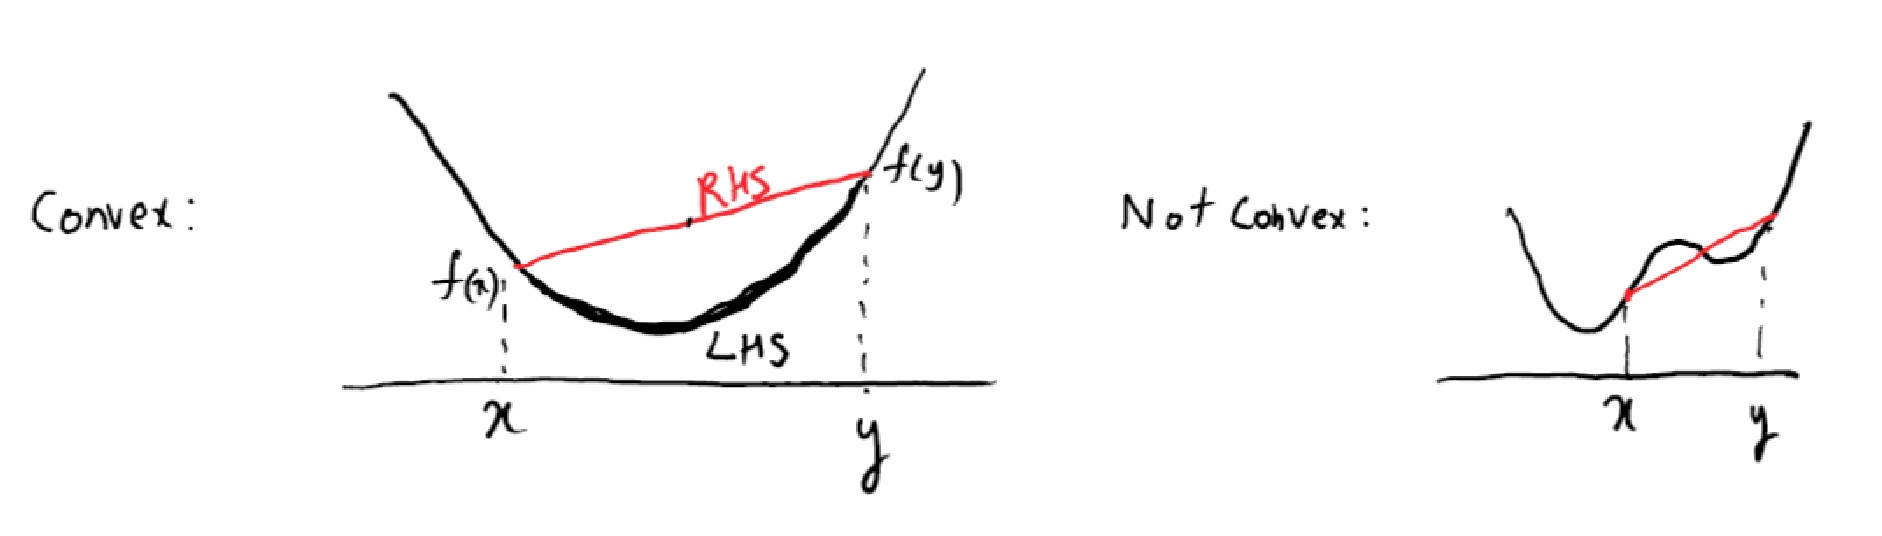 Convex:
RHS
f(y)
f(x)
LHS
x
y
Not Convex:
x
y